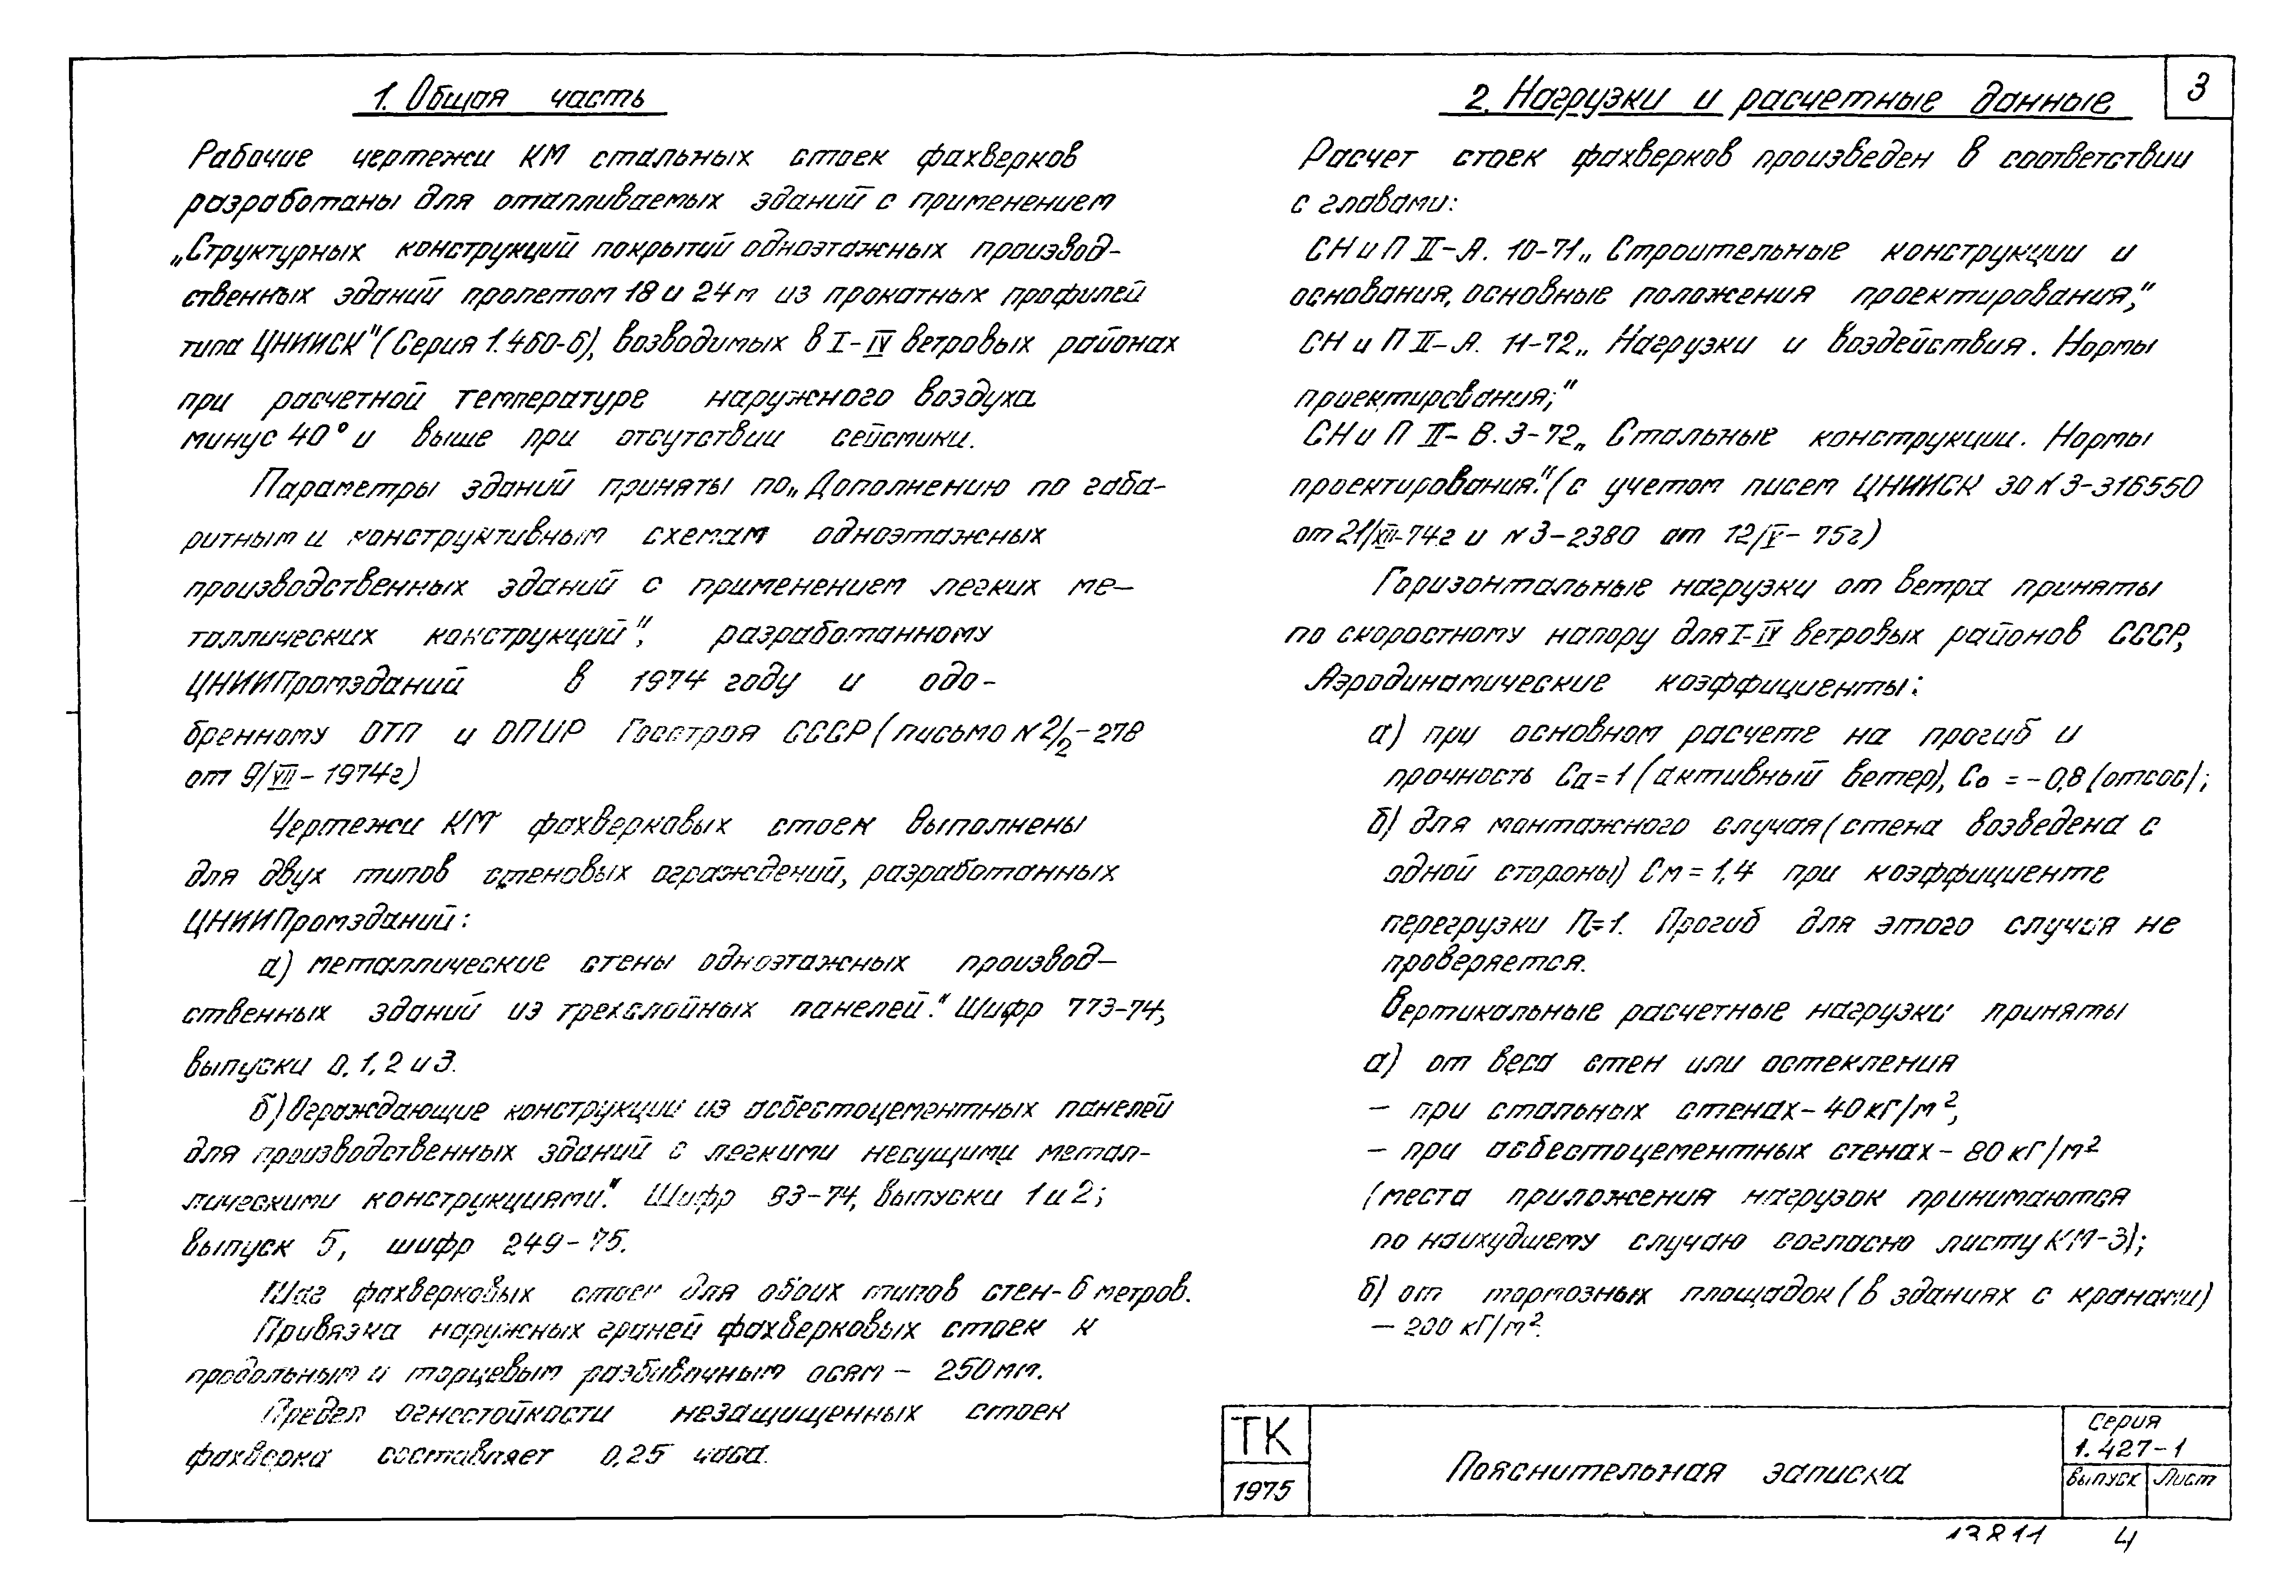 3
1. Общая часть
Рабочие чертежи КМ стальных стоек фахверков
разработаны для отапливаемых зданий с применением
„Структурных конструкций покрытий одноэтажных производ-
ственных зданий пролетом 18 и 24м из прокатных профилей
типа ЦНИИСК" (Серия 1.460-6), возводимых в I-IV ветровых районах
при расчетной температуре наружного воздуха
минус 40° и выше при отсутствии сейсмики.
Параметры зданий приняты по „Дополнению по габа-
ритным и конструктивным схемам одноэтажных
производственных зданий с применением легких ме-
таллических конструкций", разработанному
ЦНИИПромзданий в 1974 году и одо-
бренному ОТП и ОПИР Госстроя СССР (письмо N 2/2-278
от 9/VII-1974г)
Чертежи КМ фахверковых стоек выполнены
для двух типов стеновых ограждений, разработанных
ЦНИИПромзданий:
а) металлические стены одноэтажных производ-
ственных зданий из трехслойных панелей." Шифр 773-74,
выпуски 0, 1, 2 и 3.
б) Ограждающие конструкции из асбестоцементных панелей
для производственных зданий с легкими несущими метал-
лическими конструкциями." Шифр 93-74, выпуски 1 и 2;
выпуск 5, шифр 249-75.
Шаг фахверковых стоек для обоих типов стен-6 метров.
Привязка наружных граней фахверковых стоек к
продольным и торцевым разбивочным осям - 250мм.
Предел огнестойкости незащищенных стоек
фахверка составляет 0,25 часа.
2. Нагрузки и расчетные данные
Расчет стоек фахверков произведен в соответствии
с главами:
СНиП II-А. 10-71 „Строительные конструкции и
основания, основные положения проектирования,"
СНиП II-А. 11-72 „Нагрузки и воздействия. Нормы
проектирования;"
СНиП II-В. 3-72 „Стальные конструкции. Нормы
проектирования." (с учетом писем ЦНИИСК ЗД N 3-316550
от 21/XII-74г и N 3-2380 от 12/V-75г)
Горизонтальные нагрузки от ветра приняты
по скоростному напору для I-IV ветровых районов СССР,
Аэродинамические коэффициенты:
а) при основном расчете на прогиб и
прочность Са=1 (активный ветер), Со = -0,8 (отсос);
б) для монтажного случая (стена возведена с
одной стороны) См = 1,4 при коэффициенте
перегрузки П=1. Прогиб для этого случая не
проверяется.
Вертикальные расчетные нагрузки приняты
а) от веса стен или остекления
- при стальных стенах - 40 кГ/м²,
- при асбестоцементных стенах - 80 кГ/м²
(места приложения нагрузок принимаются
по наихудшему случаю согласно листу КМ-3);
б) от тормозных площадок (в зданиях с кранами)
- 200 кГ/м².
ТК
1975
Пояснительная записка
Серия
1.427-1
Выпуск Лист
13811 4